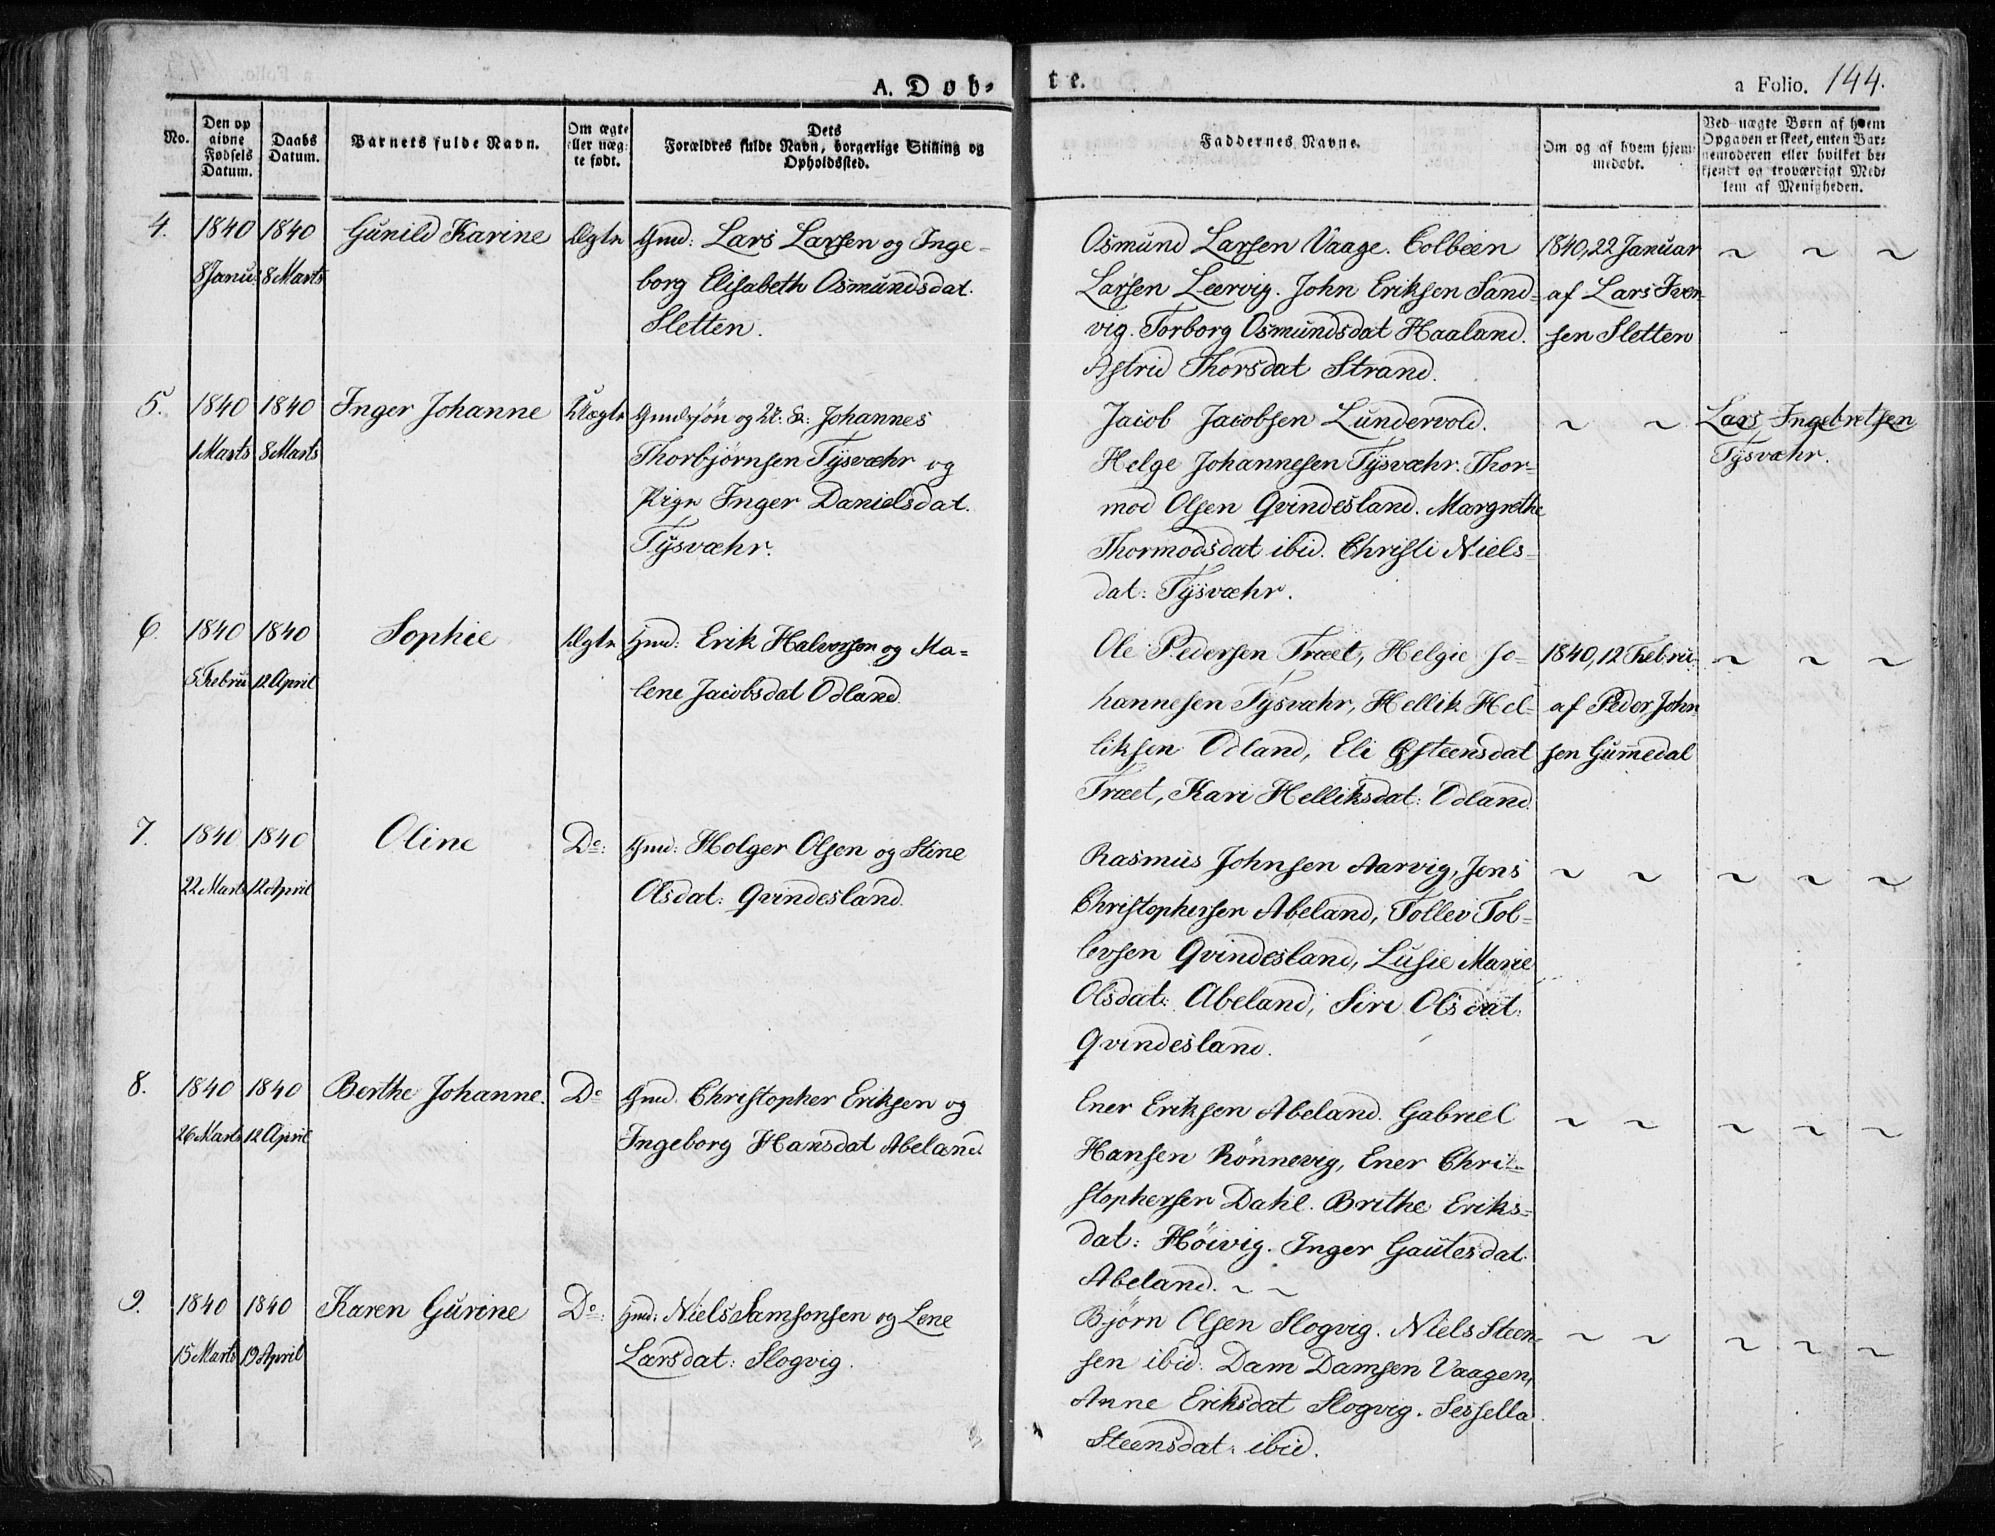 A. Døb-
te.
a Folio. 144.
No.
Den op
givne
Fødsels
Datum.
Daabs
Datum.
Barnets fulde Navn.
Om ægte
eller uæg-
te født.
Dets
Forældres fulde Navn, borgerlige Stilling og
Opholdssted.
Faddernes Navne.
Om og af hvem hjem-
medøbt.
Ved uægte Børn af hvem
Opgaven er skeet, enten Bar-
nemoderen eller hvilket be-
kjendt og troværdigt Med-
lem af Menigheden.
4.
1840
8 Janu:
1840
8 Marts
Gunild Karine
Ægte
Gmd: Lars Larsen og Inge-
borg Elisabeth Osmundsdat.
Sletten.
Osmund Larsen Vaage. Colbeen
Larsen Leervig. John Eriksen Sand-
vig. Torborg Osmundsdat Haaland.
Astrid Thorsdat Strand.
1840, 22 Januar
af Lars Iver-
sen Sletten
~ ~ ~
5.
1840
1 Marts
1840
8 Marts
Inger Johanne
Uægte
Gmdssøn og Johannes
Thorbjørnsen Tysvæhr og
Pige Inger Danielsdat.
Tysvæhr.
Jacob Jacobsen Lundervold.
Helge Johannesen Tysvæhr. Thor-
mod Olsen Qvindesland. Margrethe
Thormodsdat ibid. Christi Niels-
dat: Tysvæhr.
~ ~
Lars Ingebretsen
Tysvæhr.
6.
1840
5 Febru
1840
12 April
Sophie
Ægte
Gmd: Erik Halvorsen og Ma-
lene Jacobsdat Odland
Ole Pedersen Træet, Helgie Jo-
hannesen Tysvæhr, Hellik Hel-
liksen Odland, Eli Østeensdat
Træet, Kari Helliksdat: Odland.
1840, 12 Febru-
af Peder John
sen Gum̄edal
~ ~ ~
7.
1840
22 Marts
1840
12 April
Oline
Do:
Gmd: Holger Olsen og Stine
Olsdat: Qvindesland.
Rasmus Johnsen Aarvig, Jens
Christophersen Abeland, Tollev Tol-
levsen Qvindesland, Lusie Marie
Olsdat: Abeland, Siri Olsdat:
Qvindesland.
~ ~
~ ~ ~
8.
1840
26 Marts
1840
12 April
Berthe Johanne.
Do
Gmd. Christopher Eriksen og
Ingeborg Hansdat Abeland.
Ener Eriksen Abeland. Gabriel
Hansen Rønnevig, Ener Chri-
stophersen Dahl. Brithe Eriks-
dat: Høivig. Inger Gautesdat.
Abeland. ~ ~
~ ~
~ ~ ~
9.
1840
15 Marts
1840
19 April
Karen Gurine
Do:
Gmd: Niels Samsonsen og Lene
Larsdat: Slogvig.
Bjørn Olsen Slogvig. Niels Steen-
sen ibid. Dam Damsen Vaagen,
Anne Eriksdat Slogvig. Sessella
Steensdat. ibid.
~ ~
~ ~ ~